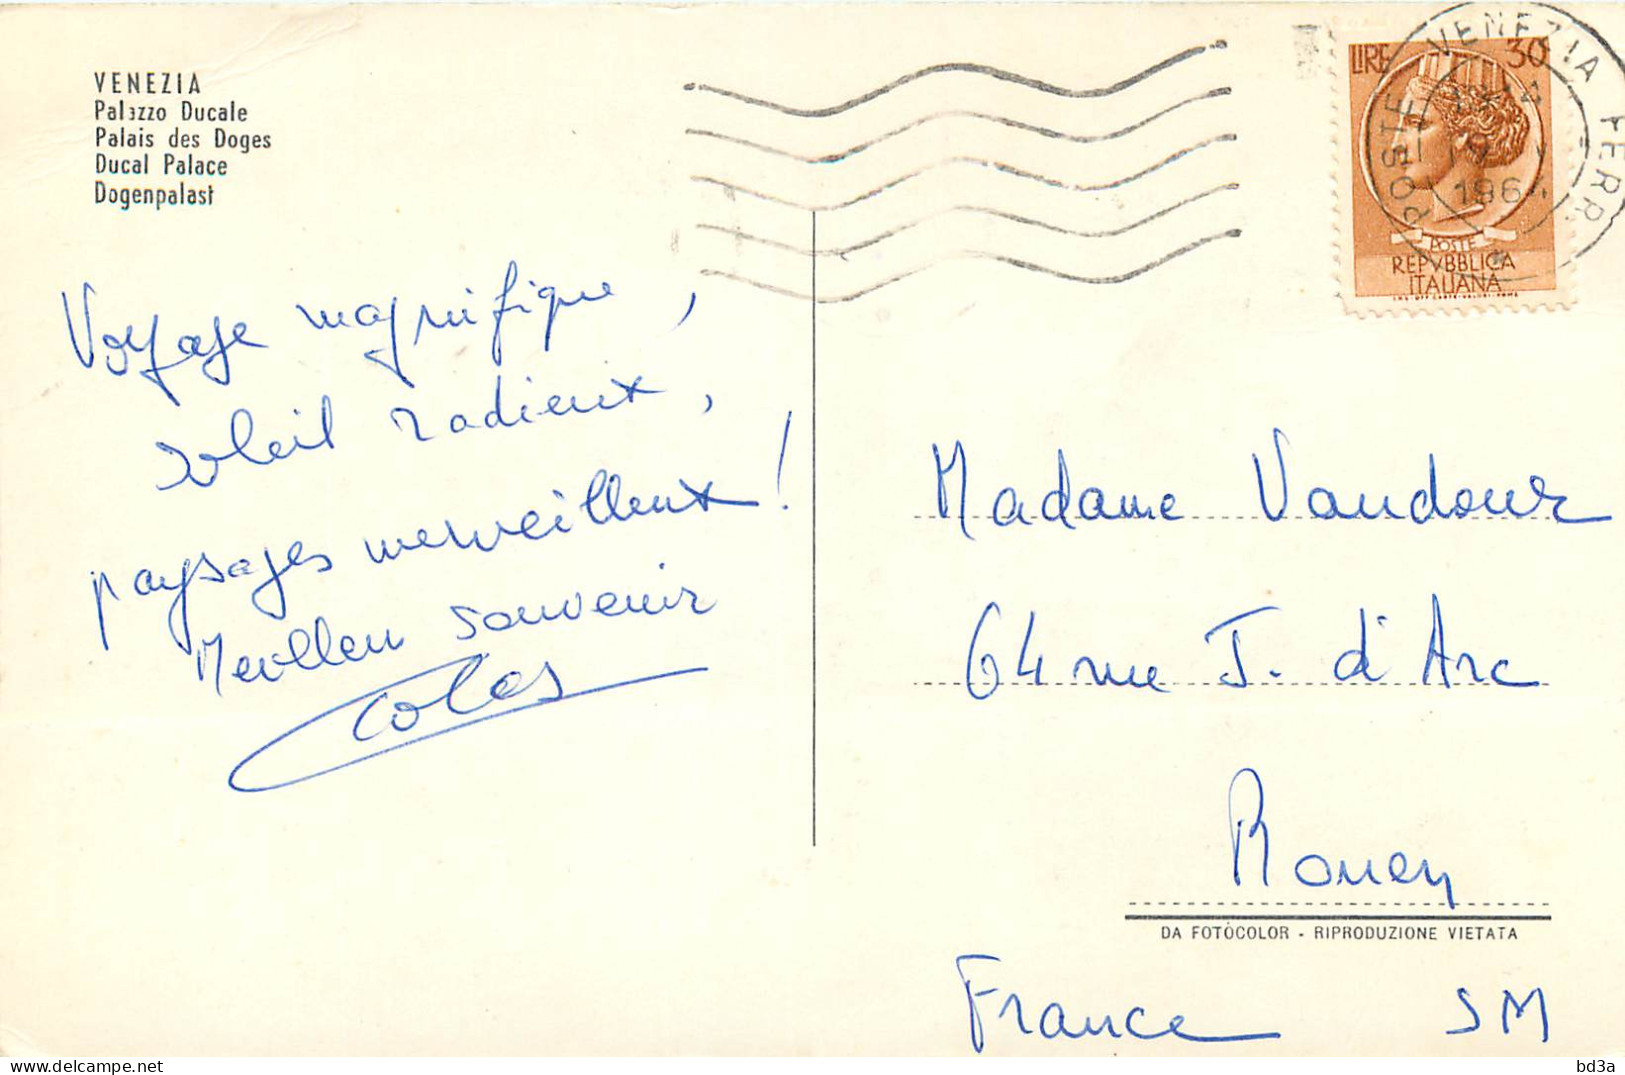 VENEZIA
Palazzo Ducale
Palais des Doges
Ducal Palace
Dogenpalast
Voyage magnifique,
soleil radieux,
paysages merveilleux!
Meilleur souvenir
Colas
POSTE VENEZIA FERR
196
LIRE 30
POSTE
REPVBBLICA
ITALIANA
IST. POL. STATO-OFF. CARTE-VALORI-ROMA
Madame Vaudour
64 rue J. d'Arc
Rouen
DA FOTOCOLOR - RIPRODUZIONE VIETATA
France SM
bd3a